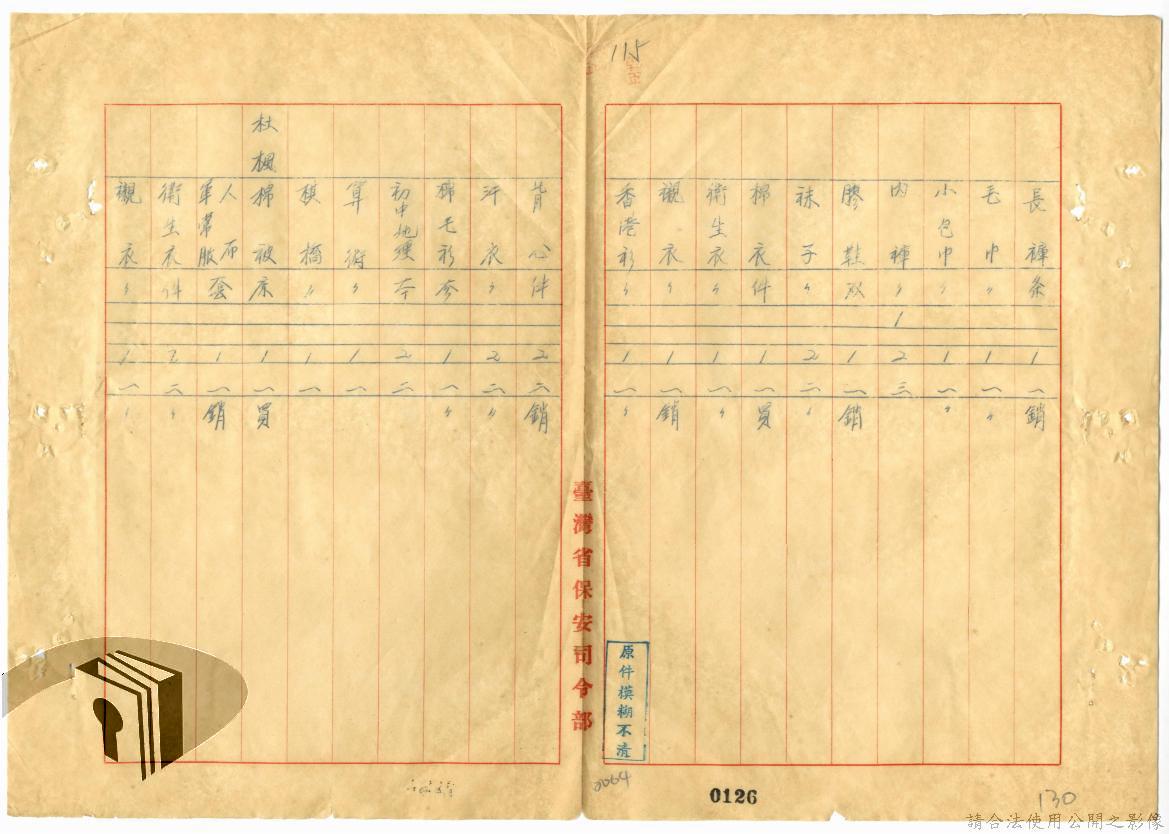 115
長褲条1一銷
毛巾〃1一〃
小包巾〃1一〃
內褲〃1 2三
膠鞋双1一銷
襪子〃2二〃
棉衣件1一買
衛生衣〃1一〃
襯衣〃1一銷
香港衫〃1一〃
臺灣省保安司令部
原件模糊不清
背心件2二銷
汗衣〃2二〃
棉毛衫套1一〃
初中地理本2二
算術〃1一
棋橋〃1一
杜楓棉被床1一買
單人布常服套1一銷
衛生衣件2二〃
襯衣〃1一〃
0064
0126
130
請合法使用公開之影像